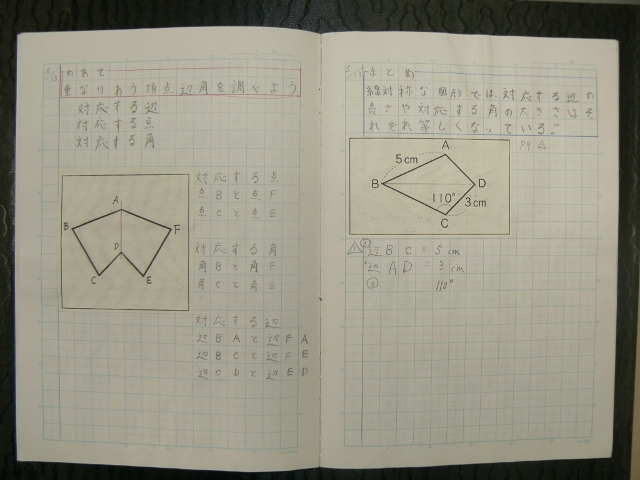 めあて
重なりあう頂点、辺、角を調べよう。
対応する辺
対応する点
対応する角
A
B
F
D
C
E
対応する点
点BとF
点CとE
対応する角
角Bと角F
角Cと角E
対応する辺
辺BAと辺FA
辺BCと辺FE
辺CDと辺ED
まとめ
線対称な図形では、対応する辺の
長さや対応する角の大きさはそ
れぞれ等しくなっている。
P9
A
5cm
B
D
110°
3cm
C
辺BC=5cm
辺AD=3cm
110°